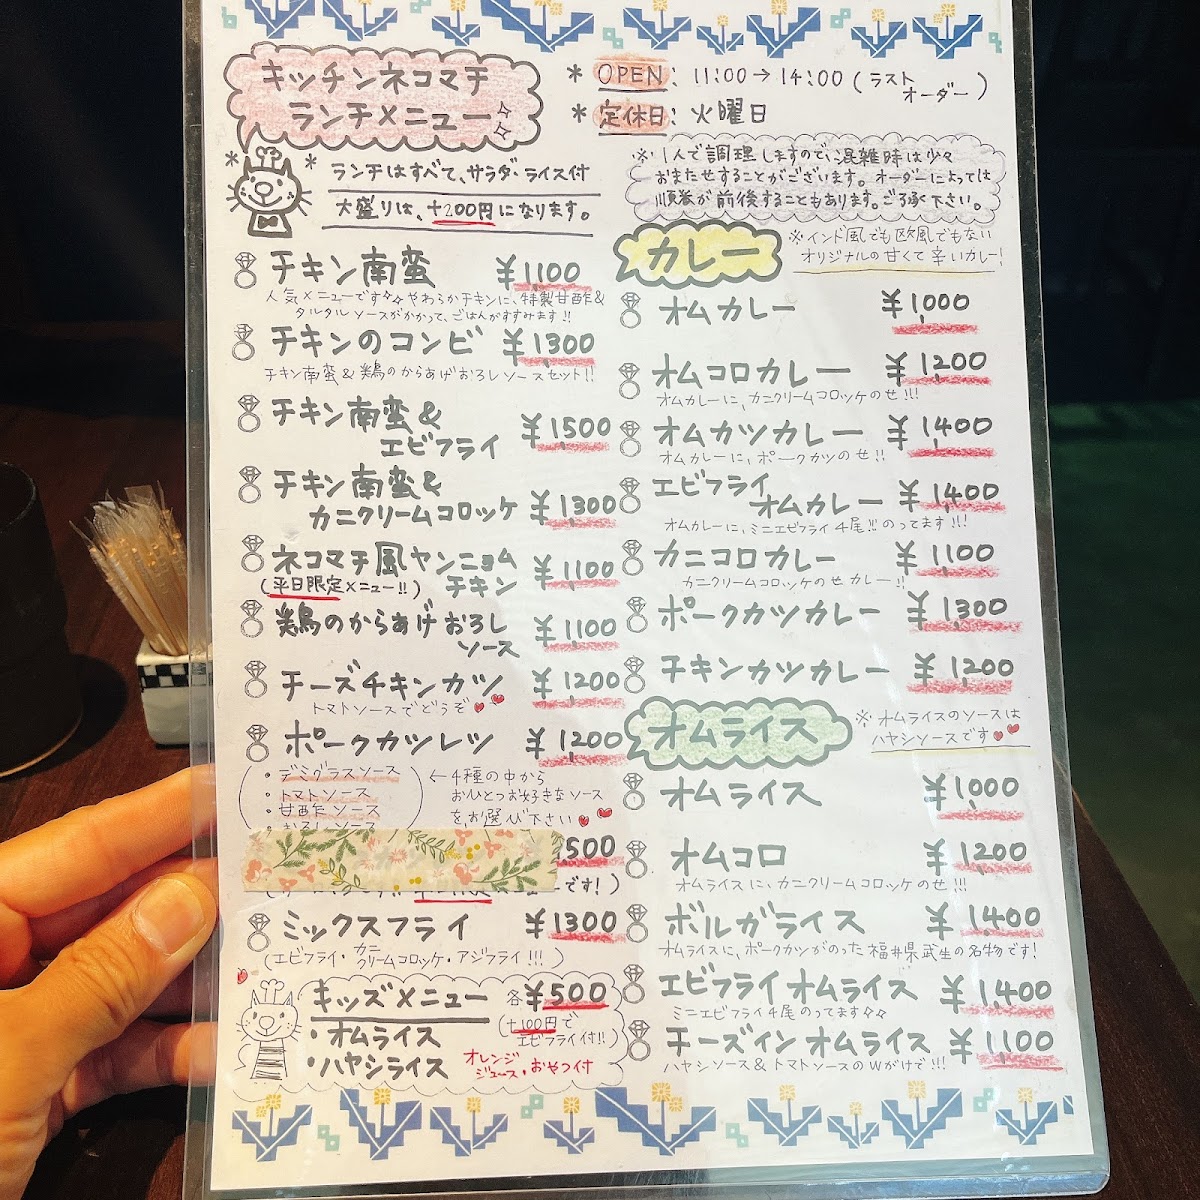 キッチンネコマチ
ランチメニュー
* OPEN: 11:00→14:00(ラストオーダー)
* 定休日: 火曜日
ランチはすべて、サラダ・ライス付
大盛りは、+200円になります。
※1人で調理しますので、混雑時は少々
おまたせすることがございます。オーダーによっては
順番が前後することもあります。ご了承下さい。
チキン南蛮 ¥1100
人気メニューです やわらかチキンに、特製甘酢&
タルタルソースがかかって、ごはんがすすみます!!
チキンのコンビ ¥1300
チキン南蛮&鶏のからあげおろしソースセット!!
チキン南蛮&
エビフライ ¥1500
チキン南蛮&
カニクリームコロッケ ¥1300
ネコマチ風ヤンニョム
(平日限定メニュー!!) チキン ¥1100
鶏のからあげおろし
ソース ¥1100
チーズチキンカツ ¥1200
トマトソースでどうぞ
ポークカツレツ ¥1200
・デミグラスソース
・トマトソース
・甘酢ソース
・おろしソース
←4種の中から
おひとつお好きなソース
を、お選び下さい
500
です!)
ミックスフライ ¥1300
(エビフライ・カニクリームコロッケ・アジフライ!!!)
キッズメニュー 各¥500
・オムライス
・ハヤシライス
(+100円で
エビフライ付!!)
オレンジ
ジュース・おやつ付
カレー
※インド風でも欧風でもない
オリジナルの甘くて辛いカレー!
オムカレー ¥1000
オムコロカレー ¥1200
オムカレーに、カニクリームコロッケのせ!!!
オムカツカレー ¥1400
オムカレーに、ポークカツのせ!!
エビフライ
オムカレー ¥1400
オムカレーに、ミニエビフライ4尾!!のってます!!!
カニコロカレー ¥1100
カニクリームコロッケのせカレー!!
ポークカツカレー ¥1300
チキンカツカレー ¥1200
オムライス
※オムライスのソースは
ハヤシソースです
オムライス ¥1000
オムコロ ¥1200
オムライスに、カニクリームコロッケのせ!!!
ボルガライス ¥1400
オムライスに、ポークカツがのった福井県武生の名物です!
エビフライオムライス ¥1400
ミニエビフライ4尾のってます
チーズインオムライス ¥1100
ハヤシソース&トマトソースのWがけで!!!